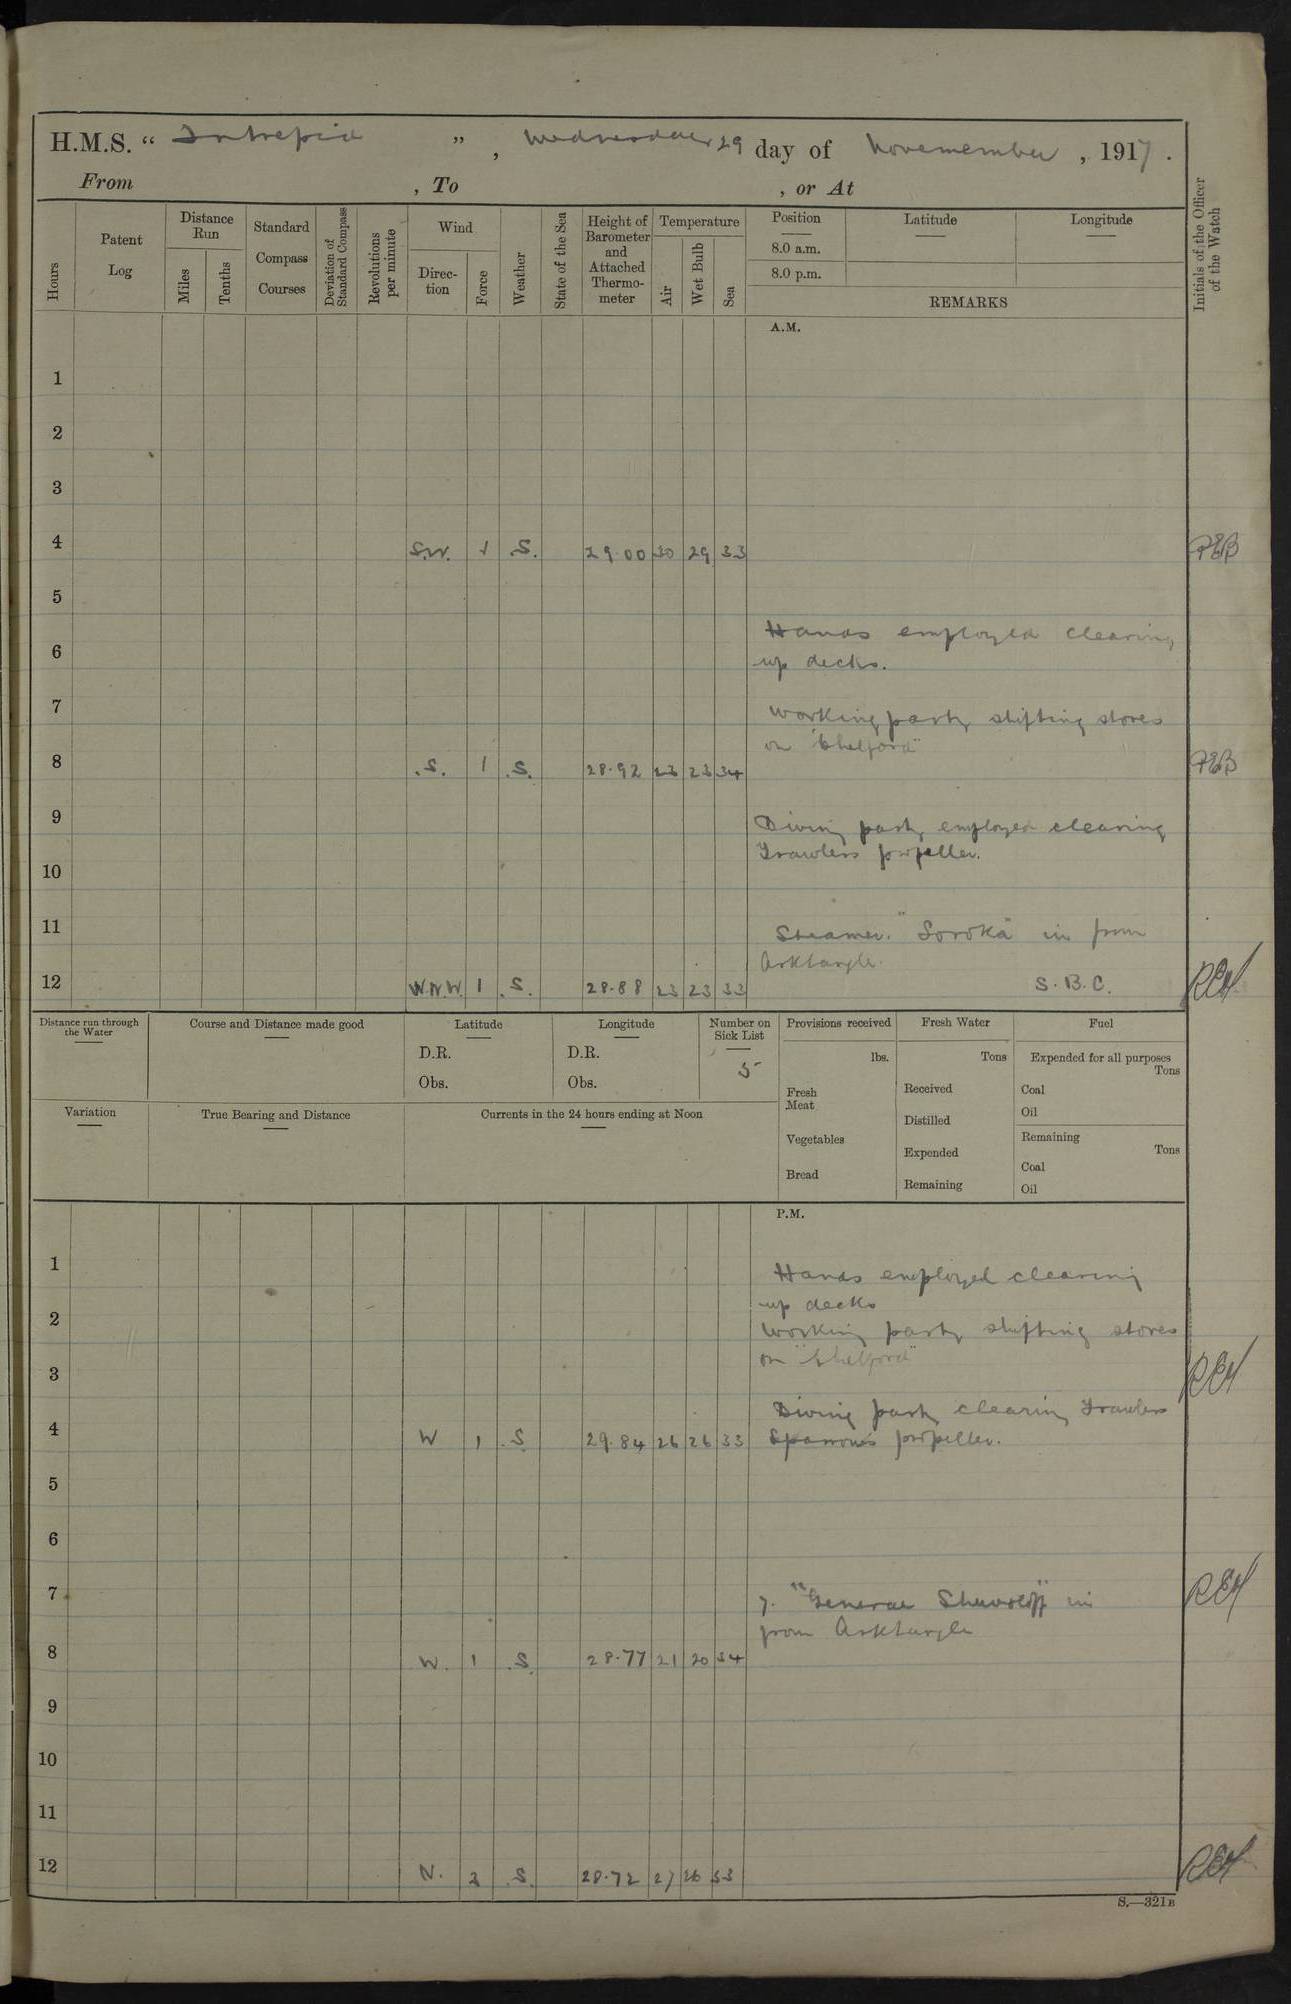 H.M.S. “ Intrepid ” , Wednesday 29 day of Novemember , 1917 .
From , To , or At
Hours
Patent Log
Distance Run
Miles
Tenths
Standard Compass Courses
Deviation of Standard Compass
Revolutions per minute
Wind
Direc-tion
Force
Weather
State of the Sea
Height of Barometer and Attached Thermo-meter
Temperature
Air
Wet Bulb
Sea
Position Latitude Longitude
8.0 a.m.
8.0 p.m.
REMARKS
Initials of the Officer of the Watch
A.M.
1
2
3
4 S.W. 1 .S. 29.00 30 29 33 PEB
5
Hands employed clearing
6
up decks.
7
Working party shifting stores
on "Shelford"
8 .S. 1 .S. 28.92 23 23 34 PEB
9
Diving party employed clearing
Trawlers propeller.
10
11
Steamer. "Soroka" in from
Arktangle.
12 W.N.W. 1 .S. 28.88 23 23 33 S.B.C. REH
Distance run through the Water
Course and Distance made good
Latitude
D.R.
Obs.
Longitude
D.R.
Obs.
Number on Sick List
5
Provisions received
lbs.
Fresh Meat
Vegetables
Bread
Fresh Water
Tons
Received
Distilled
Expended
Remaining
Fuel
Expended for all purposes
Tons
Coal
Oil
Remaining
Tons
Coal
Oil
Variation
True Bearing and Distance
Currents in the 24 hours ending at Noon
P.M.
1
Hands employed clearing
up decks
2
Working party shifting stores
on "Shelford"
3 REH
Diving party clearing Trawlers
4 W 1 .S. 29.84 26 26 33 Sparrows propeller.
5
6
7 7. "General in REH
from Arktangle
8 W. 1 .S. 28.77 21 20 34
9
10
11
12 N. 2 .S. 28.72 27 26 33 REH
S.—321B